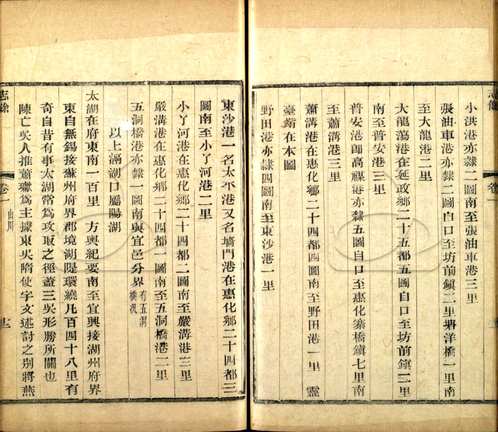 小洪港亦隸二圖南至張油車港三里
張油車港亦隸二圖自口至坊前鎮二里塘洋橋一里南
至大龍港二里
大龍蕩港在延政鄉二十五都五圖自口至坊前鎮二里
南至普安港三里
普安港即高蘇港亦隸五圖自口至惠化寨橋鎮七里南
至蕭溝港三里
蕭溝港在惠化鄉二十四都四圖南至野田港一里 靈
臺鄉在本圖
野田港亦隸四圖南至東沙港一里
志餘
卷一
東沙港一名太平港又名墻門港在惠化鄉二十四都三
圖南至小丫河港二里
小丫河港在惠化鄉二十四都二圖南至嚴溝港三里
嚴溝港在惠化鄉二十四都一圖南至五洞橋港二里
五洞橋港亦隸一圖南與宜邑分界有五洞橋汛
以上滆湖口屬陽湖
太湖在府東南一百里 方輿紀要南至宜興接湖州府界
東自無錫接蘇州府界郡境湖隄環繞凡百四十八里有
奇自昔有事太湖常為攻取之徑蓋三吳形勝所關也
陳亡吳人推蕭瓛為主據東吳隋使宇文述討之別將燕
志餘
卷一
山川